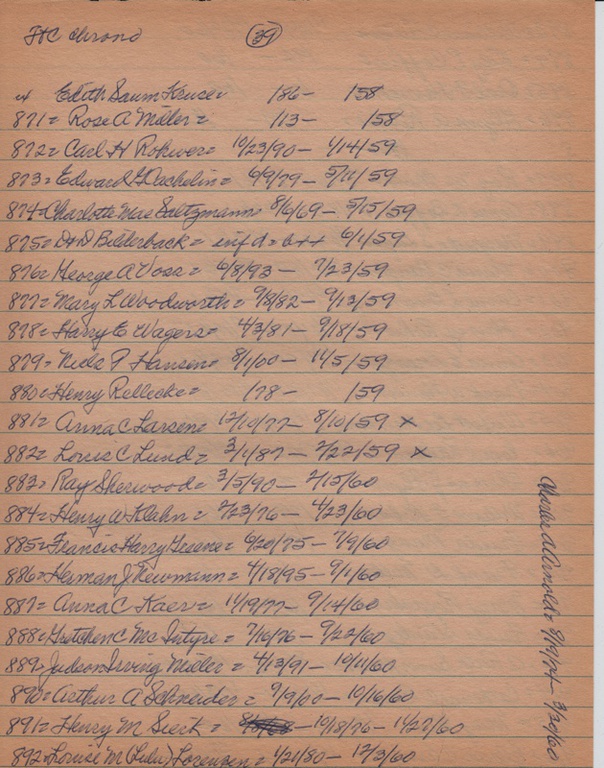 FHC chrono 39
x Edith Saum Kruse = 186- 158
871 = Rose A Miller = 113- 158
872 = Carl H Rohwer = 10/23/90 - 1/14/59
873 = Edward G Dechelin = 6/9/79 - 5/11/59
874 = Charlotte Mae Saltzmann 8/6/69 - 5/15/59
875 = D+D Bilderback = inf d = b++ 6/1/59
876 = George A Voss = 6/8/93 - 7/23/59
877 = Mary L Woodworth = 9/8/82 - 9/13/59
878 = Harry E Wagers = 4/3/81 - 9/18/59
879 = Niels P Hansen = 8/1/00 - 11/5/59
880 = Henry Rellecke = 178 - 159
881 = Anna C Larsen = 12/10/77 - 8/10/59 x
882 = Louis C Lund = 3/1/87 - 2/22/59 x
883 = Ray Sherwood = 3/5/90 - 2/15/60
884 = Henry W Klahn = 2/23/76 - 4/23/60
885 = Francis Harry Greene = 6/20/75 - 7/9/60
886 = Herman J Newmann = 4/18/95 - 9/1/60
887 = Anna C Kaer = 11/19/77 - 9/14/60
888 = Gretchen C McIntyre = 7/16/76 - 9/22/60
889 = Judson Irving Miller = 4/13/91 - 10/11/60
890 = Arthur A Schneider = 9/9/00 - 10/16/60
891 = Henry M Sierk = - 10/18/76 - 11/27/60
892 = Louise M (Lulu) Lorensen = 1/21/80 - 12/3/60
Charles A Arnold = 9/19/74 - 3/20/60